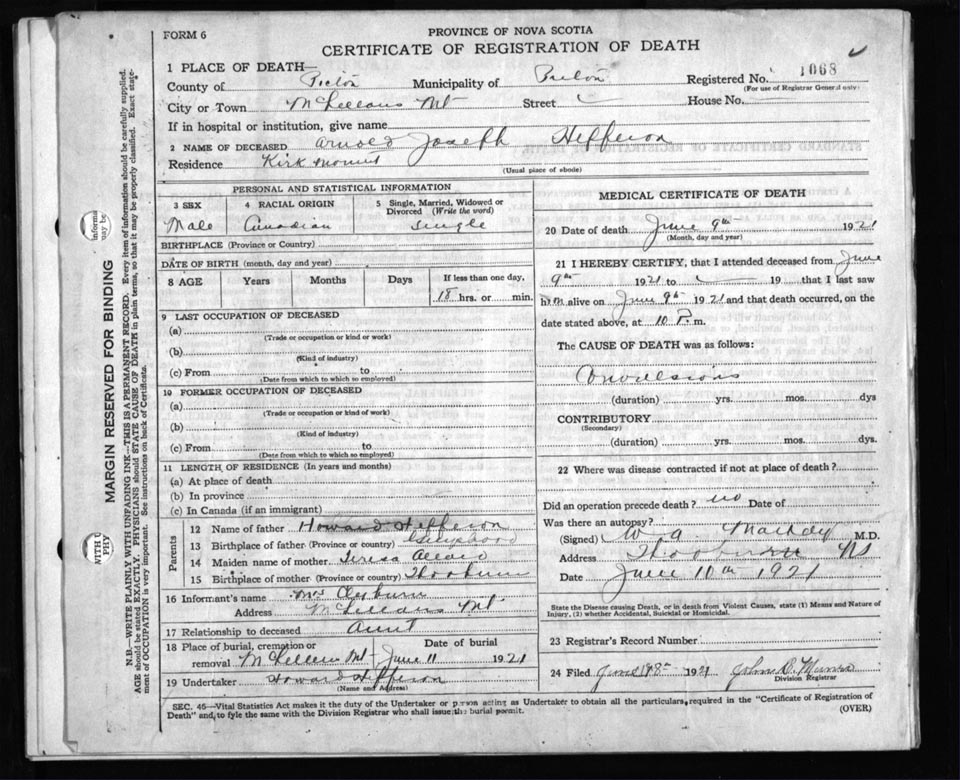 FORM 6
PROVINCE OF NOVA SCOTIA
CERTIFICATE OF REGISTRATION OF DEATH
1 PLACE OF DEATH—
County of Pictou Municipality of Pictou Registered No. 1068
(For use of Registrar General only)
City or Town McLellans Mt Street House No.
If in hospital or institution, give name
2 NAME OF DECEASED Arnold Joseph Hefferon
Residence Kirkmount
(Usual place of abode)
PERSONAL AND STATISTICAL INFORMATION
3 SEX 4 RACIAL ORIGIN 5 Single, Married, Widowed or Divorced (Write the word)
Male Canadian Single
BIRTHPLACE (Province or Country)
DATE OF BIRTH (month, day and year)
8 AGE Years Months Days If less than one day,
18 hrs. or min.
9 LAST OCCUPATION OF DECEASED
(a)
(Trade or occupation or kind of work)
(b)
(Kind of industry)
(c) From to
(Date from which to which so employed)
10 FORMER OCCUPATION OF DECEASED
(a)
(Trade or occupation or kind of work)
(b)
(Kind of industry)
(c) From to
(Date from which to which so employed)
11 LENGTH OF RESIDENCE (In years and months)
(a) At place of death
(b) In province
(c) In Canada (if an immigrant)
Parents
12 Name of father Howard Hefferon
13 Birthplace of father (Province or country)
14 Maiden name of mother Teresa
15 Birthplace of mother (Province or country) Thorburn
16 Informant's name Mrs
Address McLellans Mt
17 Relationship to deceased Aunt
18 Place of burial, cremation or removal McLellans Mt Date of burial June 11 1921
19 Undertaker Howard Hefferon
(Name and Address)
MEDICAL CERTIFICATE OF DEATH
20 Date of death June 9th 1921
(Month, day and year)
21 I HEREBY CERTIFY, that I attended deceased from June
9th 1921 to 19 that I last saw
him alive on June 9th 1921 and that death occurred, on the
date stated above, at 10 P.m.
The CAUSE OF DEATH was as follows:
Convulsions
(duration) yrs. mos. dys
CONTRIBUTORY
(Secondary)
(duration) yrs. mos. dys.
22 Where was disease contracted if not at place of death?
Did an operation precede death? no Date of
Was there an autopsy?
(Signed) W. A. MacKay M.D.
Address Thorburn NS
Date June 10th 1921
State the Disease causing Death, or in death from Violent Causes, state (1) Means and Nature of
Injury, (2) whether Accidental, Suicidal or Homicidal.
23 Registrar's Record Number
24 Filed June 1921 John D. Munro
Division Registrar
SEC. 45—Vital Statistics Act makes it the duty of the Undertaker or person acting as Undertaker to obtain all the particulars, required in the "Certificate of Registration of
Death" and, to fyle the same with the Division Registrar who shall issue the burial permit.
(OVER)
MARGIN RESERVED FOR BINDING
N.B.—WRITE PLAINLY WITH UNFADING INK—THIS IS A PERMANENT RECORD. Every item of information should be carefully supplied.
AGE should be stated EXACTLY. PHYSICIANS should STATE CAUSE OF DEATH in plain terms, so that it may be properly classified. Exact state-
ment of OCCUPATION is very important. See instructions on back of Certificate.
informa
may be
WITH U
PHY